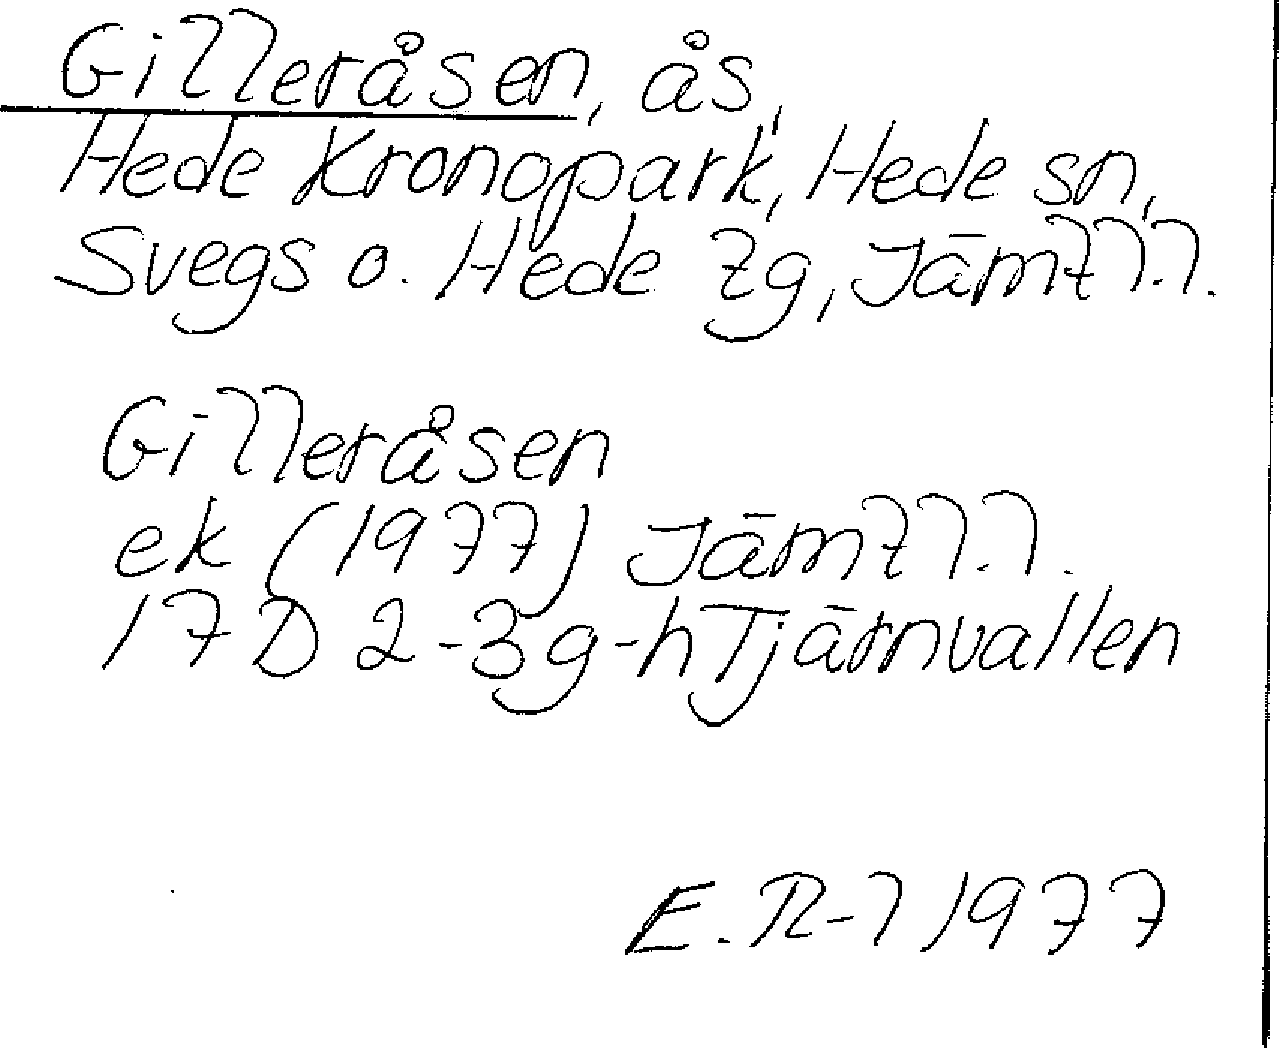 Gilleråsen, ås,
Hede Kronopark, Hede sn,
Svegs o. Hede tg, Jämtl.l.
Gilleråsen
ek (1977) Jämtl.l.
17 D 2-3g-h Tjärnvallen
E.R-l 1977